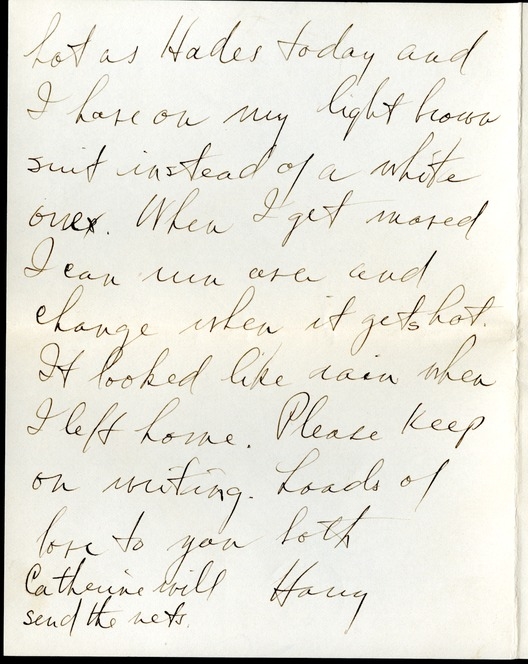 hot as Hades today and
I have on my light brown
suit instead of a white
one. When I get moved
I can run over and
change when it gets hot.
It looked like rain when
I left home. Please keep
on writing. Loads of
love to you both
Catherine will Harry
send the nets.